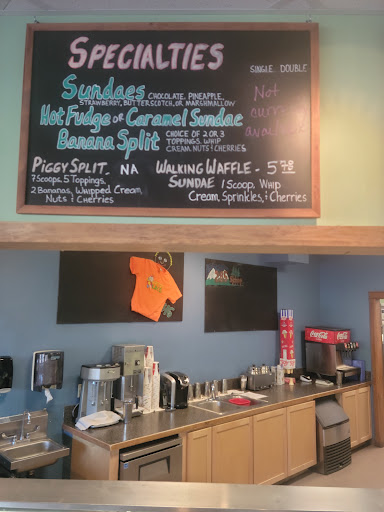 SPECIALTIES
SINGLE DOUBLE
SUNDAES CHOCOLATE, PINEAPPLE,
STRAWBERRY, BUTTERSCOTCH, OR MARSHMALLOW
Not
HOT FUDGE OR CARAMEL SUNDAE
BANANA SPLIT CHOICE OF 2 OR 3
TOPPINGS, WHIP
CREAM, NUTS & CHERRIES
PIGGY SPLIT - NA
7 SCOOPS, 5 TOPPINGS,
2 BANANAS, WHIPPED CREAM,
NUTS & CHERRIES
WALKING WAFFLE - 5 78
SUNDAE 1 SCOOP, WHIP
CREAM, SPRINKLES, & CHERRIES
Coca-Cola